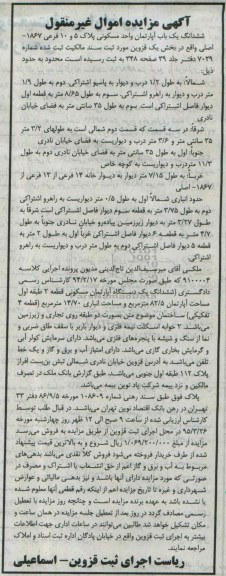 آگهی مزایده اموال غیرمنقول
ششدانگ یک باب آپارتمان واحد مسکونی پلاک ۵ و ۱۰ فرعی ۱۸۶۷-
اصلی واقع در بخش یک قزوین مورد ثبت سند مالکیت ثبت شماره
۷۰۲۹ دفتر جلد ۳۹ صفحه ۳۴۸ به ثبت رسیده است محدود به حدود
ذیل:
شمالاً: به طول ۱/۲ درب و دیوار به پاسیو اشتراکی، دوم به طول ۱/۹
متر درب و دیوار به راهرو اشتراکی. سوم به طول ۸/۶۵ متر به قطعه اول
دیوار فاصل اشتراکی است. سوم به طول ۳۵ سانتی متر به فضای خیابان
نادری
شرقاً: در سه قسمت که قسمت دوم شمالی است به طولهای ۳/۲ متر
۳۵ سانتی متر و ۳/۶ متر درب و دیواریست به فضای خیابان نادری
جنوباً: اول به طول ۳۵ سانتی متر به فضای خیابان نادری دوم به طول
۱۱/۳ متر درب و دیواریست به کوچه خاص
غرباً: به طول ۷/۱۵ متر دیوار به دیوار خانه ۱۴ فرعی از ۱۳ فرعی از
۱۸۶۷- اصلی
حدود انباری شمالاً اول به طول ۰/۵ متر دیواریست به راهرو اشتراکی
دوم به طول ۳/۷۵ متر به قطعه سوم دیوار فاصل اشتراکی است شرقاً به
طول ۳/۲۷ متر به دیوار زیرزمین پیاده‌رو خیابان نادری جنوباً به طول
۴/۷ متر به قطعه ۶ دیوار فاصل اشتراکی غرباً اول به طول ۲ متر به
قطعه ۵ دیوار فاصل اشتراکی دوم به طول متر درب و دیواریست به راهرو
اشتراکی.
ملکی آقای میرسیف‌الدین تاج‌الدینی مدیون پرونده اجرایی کلاسه
۹۱۰۰۰۴۰ که طبق صورت مجلس مورخه ۹۴/۲/۱۷ کارشناس رسمی
دادگستری (ششدانگ یک دستگاه آپارتمان مسکونی قطعه ۲ طبقه اول
مساحت آپارتمان ۸۲/۵ مترمربع و مساحت انباری ۱۴/۷۰ مترمربع (قطعه ۴
تفکیکی) ساختمان موضوع متن بصورت دو طبقه روی تجاری و زیرزمین
می‌باشد. ۲ خوابه اسکلت نیمه فلزی و دیوار باربر با سقف طاق ضربی و
نما از سنگ و شیشه با پنجره‌های فلزی می‌باشد. دارای سرمایش کولر آبی
و گرمایش بخاری گازی می‌باشد. دارای امتیاز آب و برق و گاز و یک خط
تلفن می‌باشد. به آدرس قزوین خیابان نادری شمالی نبش بن‌بست افراز
پلاک ۱۱۲ طبقه اول جنوبی می‌باشد. طبق گزارش بانک ملک در تصرف
مالکین و نزد بیمه شرکت پاد نوین بیمه می‌باشد.
پلاک فوق طبق سند رهنی شماره ۱۰۸۶۰۹ مورخه ۸۶/۹/۵ دفتر ۳۳
تهران در رهن بانک اقتصاد نوین تهران می‌باشد. در قبال طلب توسط
کارشناس ارزیابی شده از ساعت ۹ صبح الی ۱۲ ظهر روز چهارشنبه مورخه
۹۵/۳/۲۶ در محل اجرای ثبت قزوین از طریق مزایده به فروش می‌رسد.
مزایده از مبلغ ۱/۰۶۹/۲۰۰/۰۰۰ ریال شروع و به بالاترین قیمت پیشنهاد
شده از طرف خریدار فروخته می‌شود فروش کلاً نقدی می‌باشد بدهی‌های
مربوط به آب و برق و گاز اعم از حق انشعاب یا اشتراک و مصرف در
صورتی که مورد مزایده دارای آنها باشد و نیز بدهی مالیاتی و عوارض
شهرداری و غیره تا تاریخ مزایده اعم از اینکه رقم قطعی آنها معلوم شده
یا نشده باشد به عهده برنده مزایده است و چنانچه روز مزایده با تعطیل
رسمی مصادف گردد در روز بعد از تعطیل جلسه مزایده در همان ساعت و
مکان تشکیل خواهد شد. طالبین می‌توانند در ساعات اداری جهت اطلاعات
بیشتر به اجرای ثبت قزوین واقع در خیابان پادگان اداره ثبت اسناد و املاک
مراجعه نمایند.
ریاست اجرای ثبت قزوین- اسماعیلی